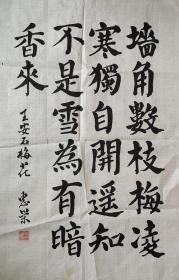 墻角數枝梅凌
寒獨自開遥知
不是雪為有暗
香來
王安石梅花 惠榮